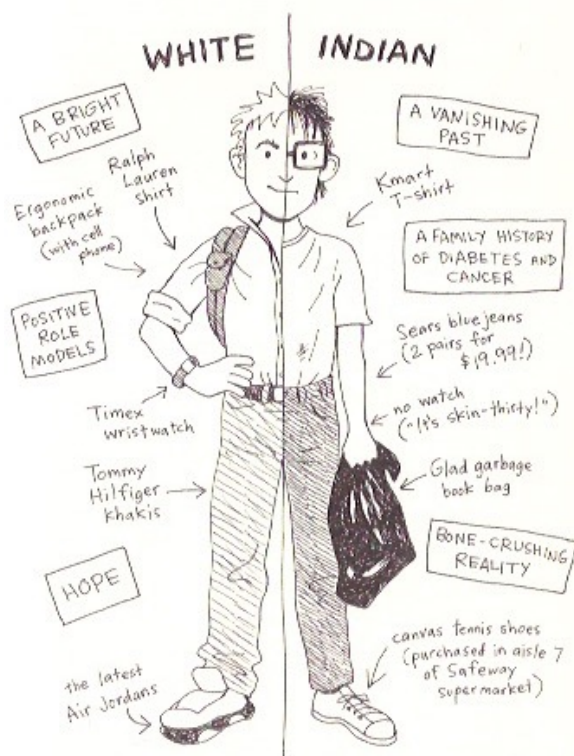 WHITE INDIAN
A BRIGHT
FUTURE
Ralph
Lauren
shirt
Ergonomic
backpack
(with cell
phone)
POSITIVE
ROLE
MODELS
Timex
wristwatch
Tommy
Hilfiger
khakis
HOPE
the latest
Air Jordans
A VANISHING
PAST
Kmart
T-shirt
A FAMILY HISTORY
OF DIABETES AND
CANCER
Sears blue jeans
(2 pairs for
$19.99!)
no watch
("It's skin-thirty!")
Glad garbage
book bag
BONE-CRUSHING
REALITY
canvas tennis shoes
(purchased in aisle 7
of Safeway
supermarket)